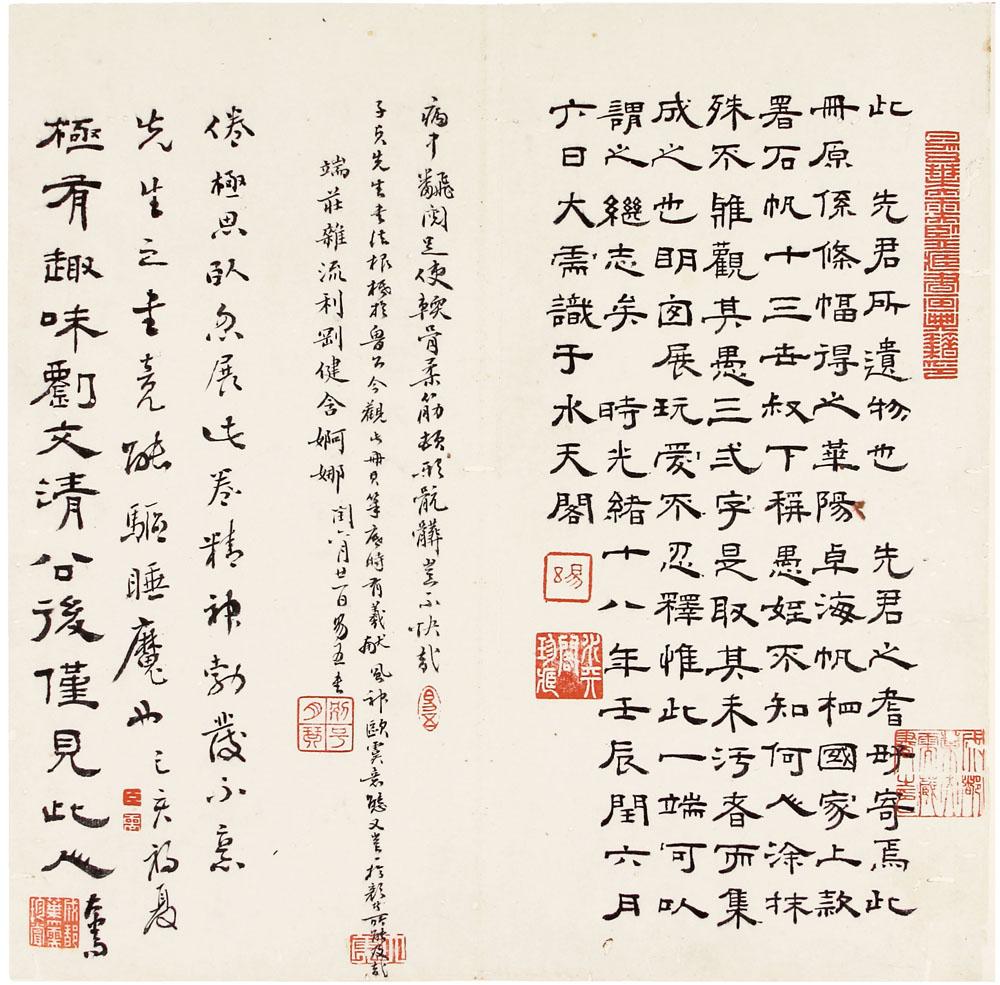 此先君所遺物也先君之耆好寄焉此
冊原係條幅得之華陽卓海帆相國家上款
署石帆十三世叔下稱愚姪不知何人涂抹
殊不雅觀其愚三弍字是取其未污者而集
成之也明囪展玩愛不忍釋惟此一端可以
謂之繼志矣時光緒十八年壬辰閏六月
六日大需識于水天閣
病中飜閱足使輭骨柔筋頓形骯髒豈不快哉
子貞先生書法根柢於魯公今觀此冊具筆底時有羲獻風神歐虞意態又豈拘於顏者所能及哉
端莊雜流利剛健含婀娜 閏六月廿一日易五書
倦極思臥忽展此卷精神勃發不意
先生之書竟能驅睡魔也 己亥初夏
極有趣味劉文清公後僅見此人 奮
水天閣珍藏
別号